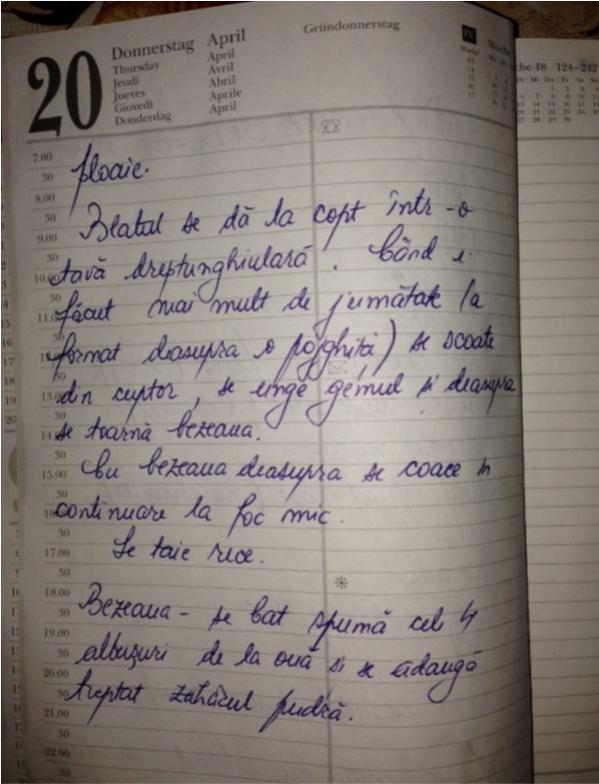 20
Donnerstag April
Thursday April
Jeudi Avril
Jueves Abril
Giovedì Aprile
Donderdag April
Gründonnerstag
IV
Woche
che 18 124-242
7.00
ploaie.
30
8.00
30
Blatul se dă la copt într-o
9.00
30
tavă dreptunghiulară. Când e
30
făcut mai mult de jumătate (a
30
format deasupra o pojghiță) se scoate
30
din cuptor, se unge gemul și deasupra
13.00
30
se toarnă bezeaua.
30
Cu bezeaua deasupra se coace în
15.00
30
continuare la foc mic.
30
Se taie rece.
17.00
30
18.00
30
Bezeaua - se bat spumă cel 4
19.00
30
albușuri de la ouă și se adaugă
20.00
30
treptat zahărul pudră.
21.00
30
22.00
30